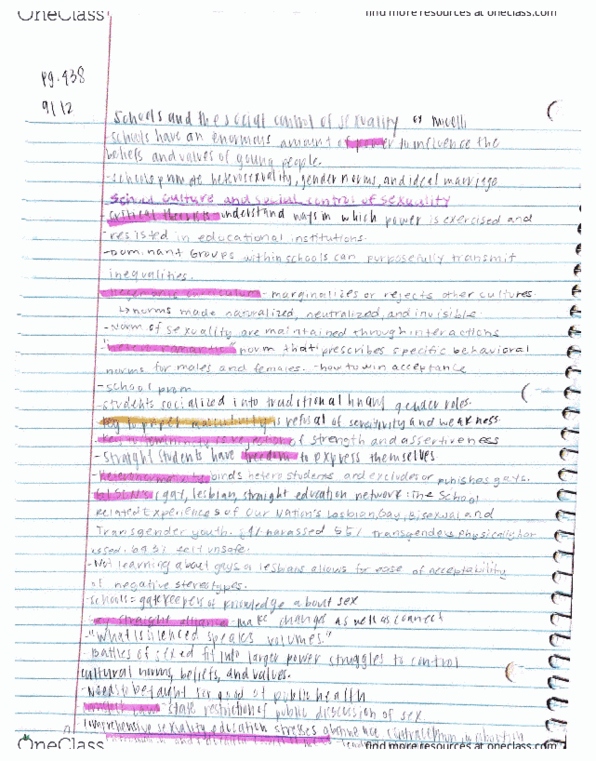 OneClass
find more resources at oneclass.com
pg. 438
9/12
Schools and the social control of sexuality
-schools have an enormous amount of power to influence the
beliefs and values of young people.
-schools promote heterosexuality, gender norms, and ideal marriage
School culture and social control of sexuality
-critical theorists understand ways in which power is exercised and
-resisted in educational institutions.
-Dominant Groups within schools can purposefully transmit
inequalities.
-marginalizes or rejects other cultures.
↳norms made naturalized, neutralized, and invisible
-Norm of sexuality are maintained through interactions
norm that prescribes specific behavioral
norms for males and females. -how to win acceptance
-school prom
-students socialized into traditional binary gender roles.
-key to proper masculinity is refusal of sensitivity and weakness.
-key to femininity is rejection of strength and assertiveness
-straight students have freedom to express themselves
binds hetero students and excludes or punishes gays.
(gay, lesbian, straight education network: The School
Related Experiences of Our Nation's Lesbian, Gay, Bisexual and
Transgender youth. harassed 55% transgenders physically har
assed. 64.3% felt unsafe.
-Not learning about gays or lesbians allows for ease of acceptability
of negative stereotypes.
-schools = gatekeepers of knowledge about sex
straight alliance - make changes as well as connect
-"What is silenced speaks volumes."
Battles of sex ed fit into larger power struggles to control
cultural norms, beliefs, and values.
-Needs to be taught for good of public health
state restriction of public discussion of sex.
comprehensive sexuality education stresses abstinence contraception abortion
OneClass
find more resources at oneclass.com